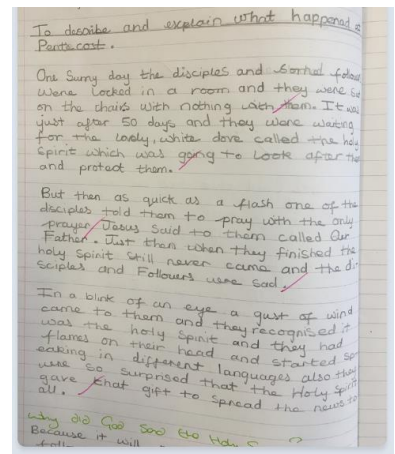 To describe and explain what happened at
Pentecost.
One Sunny day the disciples and follow
were locked in a room and they were sat
on the chairs with nothing with them. It was
just after 50 days and they were waiting
for the lovely, white dove called the holy
Spirit which was going to look after the
and protect them.
But then as quick as a flash one of the
disciples told them to pray with the only
prayer Jesus said to them called Our
Father. Just then when they finished the
holy spirit still never came and the di
sciples and Followers were sad.
In a blink of an eye a gust of wind
came to them and they recognised it
was the holy Spirit and they had
flames on their head and started sp
eaking in different languages also they
were so surprised that the Holy Spirit
gave that gift to spread the news to
all.
Why did God send the Holy S
Because it will